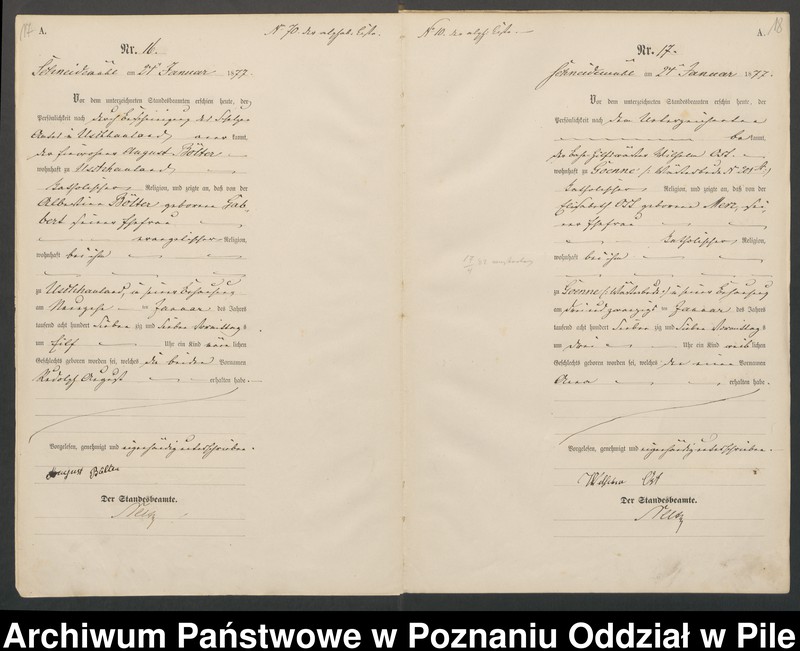 17
A.
Nr. 16.
Schneidemühl am 24 Januar 1877.
Vor dem unterzeichneten Standesbeamten erschien heute, der
Persönlichkeit nach durch Bescheinigung des Schulzen
kannt,
der Einwohner August Bölter
wohnhaft zu Uschhauland
katholischer Religion, und zeigte an, daß von der
Albertine Bölter geborene Gäb-
bert seiner Ehefrau
evangelischer Religion,
wohnhaft bei ihm
zu Uschhauland, in seiner Behausung
am Januar des Jahres
tausend acht hundert sieben zig und sieben Vormittags
um Uhr ein Kind männlichen
Geschlechts geboren worden sei, welches die beiden Vornamen
Rudolph August erhalten habe.
Vorgelesen, genehmigt und eigenhändig unterschrieben.
August Bölter
Der Standesbeamte.
N 70. der alphab. Liste.
N 10. der alph. Liste.
18
A.
Nr. 17.
Schneidemühl am 24 Januar 1877.
Vor dem unterzeichneten Standesbeamten erschien heute, der
Persönlichkeit nach dem Unterzeichneten
bekannt,
der Wilhelm Ost
wohnhaft zu Goenne
katholischer Religion, und zeigte an, daß von der
Elisabeth Ost geborene sei-
ner Ehefrau
katholischer Religion,
wohnhaft bei ihm
zu Goenne in seiner Behausung
am drei und zwanzigsten Januar des Jahres
tausend acht hundert sieben zig und sieben Vormittags
um drei Uhr ein Kind weiblichen
Geschlechts geboren worden sei, welches den einen Vornamen
Anna erhalten habe.
Vorgelesen, genehmigt und eigenhändig unterschrieben.
Wilhelm Ost
Der Standesbeamte.
Archiwum Państwowe w Poznaniu Oddział w Pile